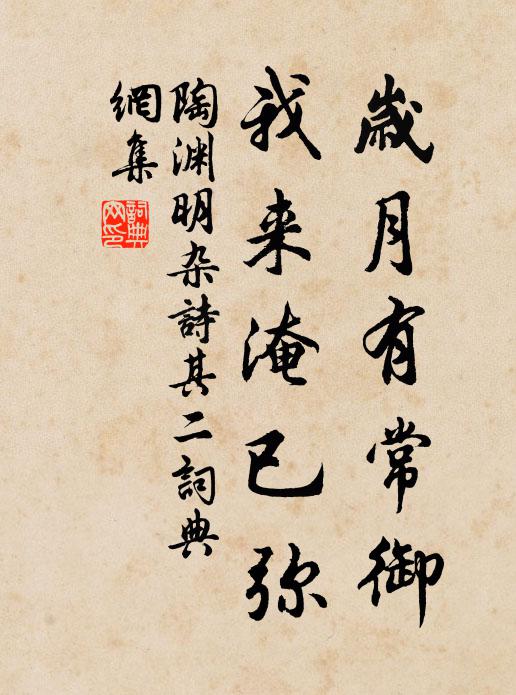 歲月有常御
我来淹已弥
陶渊明杂詩其二詞典
網集
詞典
网印